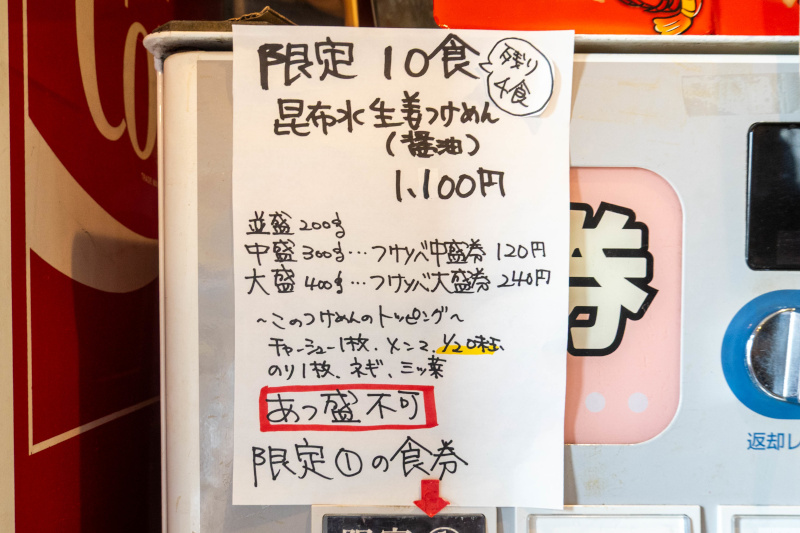 限定 10食
残り
4食
昆布水生姜つけめん
(醤油)
1,100円
並盛 200g
中盛 300g…つけめん中盛券 120円
大盛 400g…つけめん大盛券 240円
～このつけめんのトッピング～
チャーシュー1枚、メンマ、1/2味玉、
のり1枚、ネギ、三ッ葉
あつ盛不可
限定①の食券
券
返却レ
Co